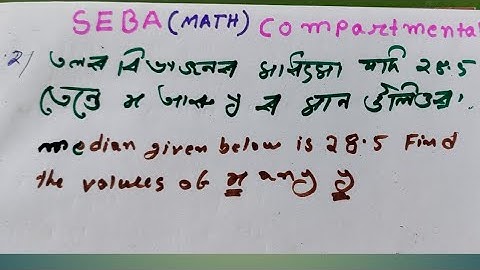 SEBA (MATH) Compartmental
2) তলৰ বিভাজনৰ মাধ্যমা যদি 28.5
তেন্তে x আৰু y ৰ মান উলিওৱা.
median given below is 28.5 Find
the values of x any y